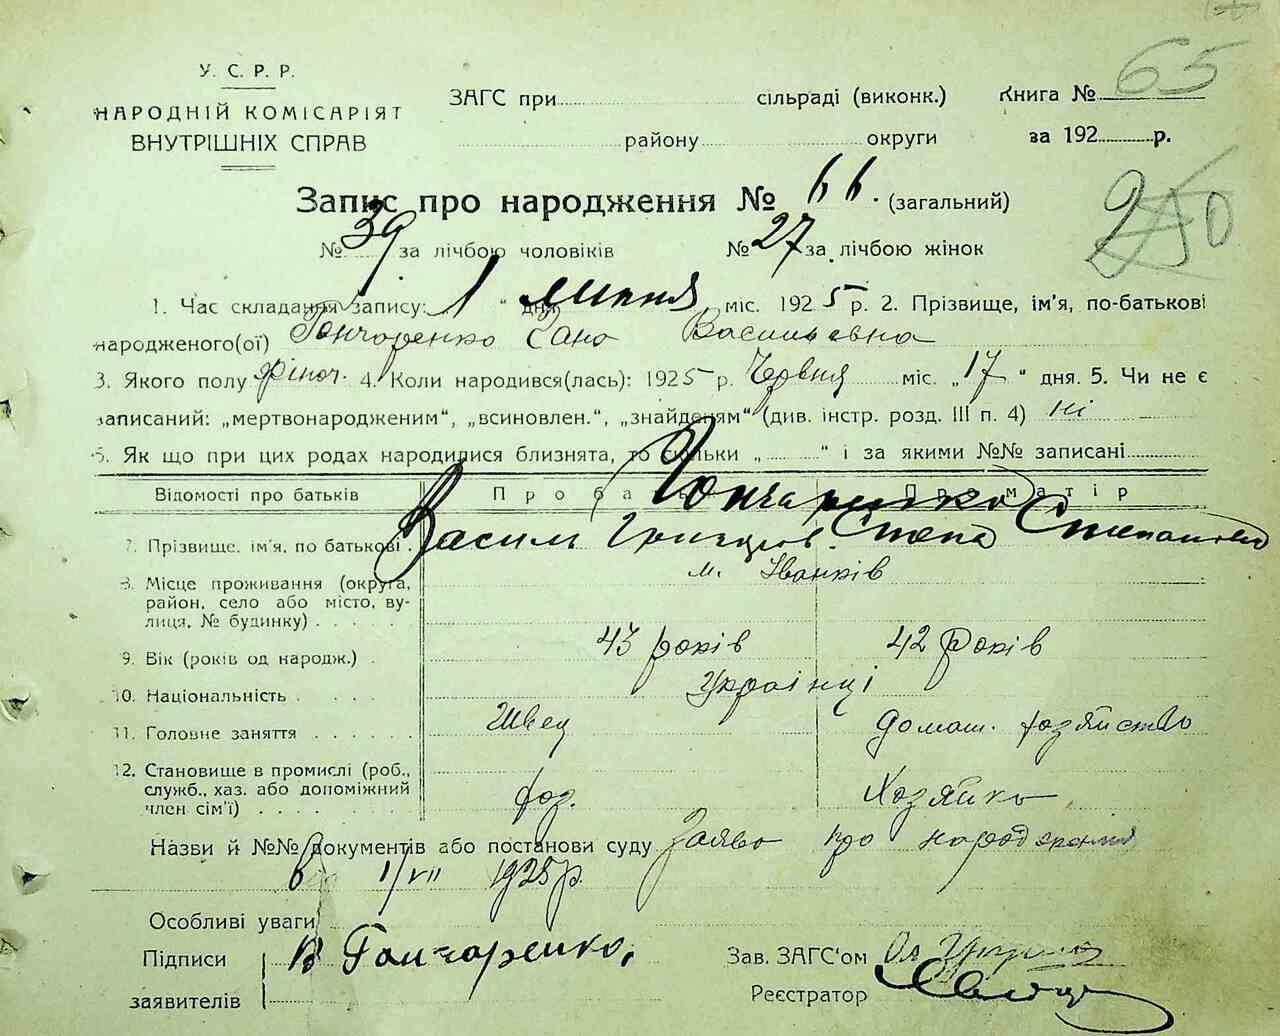 У. С. Р. Р.
НАРОДНІЙ КОМІСАРІЯТ
ВНУТРІШНІХ СПРАВ
ЗАГС при сільраді (виконк.) Книга № 65
району округи за 192 р.
250
Запис про народження № 66. (загальний)
№ 39 за лічбою чоловіків № 27 за лічбою жінок
1. Час складання запису: „1“ дня липня міс. 1925 р. 2. Прізвище, ім'я, по-батькові
народженого(ої) Гончаренко Васильевна
3. Якого полу жіноч. 4. Коли народився(лась): 1925 р. Червня міс. „17“ дня. 5. Чи не є
записаний: „мертвонародженим“, „всиновлен.“, „знайденям“ (див. інстр. розд. III п. 4) ні
6. Як що при цих родах народилися близнята, то скільки „ “ і за якими №№ записані
Відомості про батьків Про батька Про матір
Гончаренко
7. Прізвище, ім'я, по батькові. Василь Степанова
8. Місце проживання (округа, район, село або місто, вулиця, № будинку) м. Іванків
9. Вік (років од народж.) 43 років 42 років
10. Національність Українці
11. Головне заняття Швец домаш. хозяйство
12. Становище в промислі (роб., служб., хаз. або допоміжний член сім'ї) хоз. Хозяйка
Назви й №№ документів або постанови суду Заява про народження
від 1/VII 1925 р.
Особливі уваги
Підписи В Гончаренко.
заявителів
Зав. ЗАГС'ом
Реєстратор